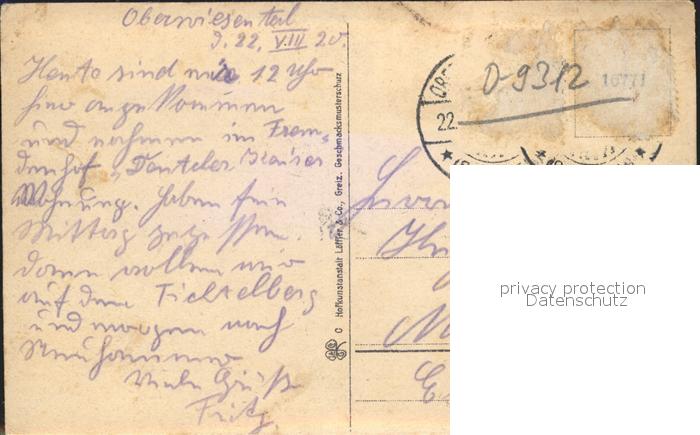 Oberwiesental
d. 22. VIII 20.
Heute sind wir 12 Uhr
hier angekommen
und nehmen im Frem-
denhof „Deutscher Kaiser
Wohnung. Haben fein
Mittag gegessen.
dann wollen wir
auf den Fichtelberg
und morgen nach
Viele Grüße
Fritz
© Hofkunstanstalt Löffler & Co., Greiz. Geschmacksmusterschutz
D-9312
16771
22.
privacy protection
Datenschutz